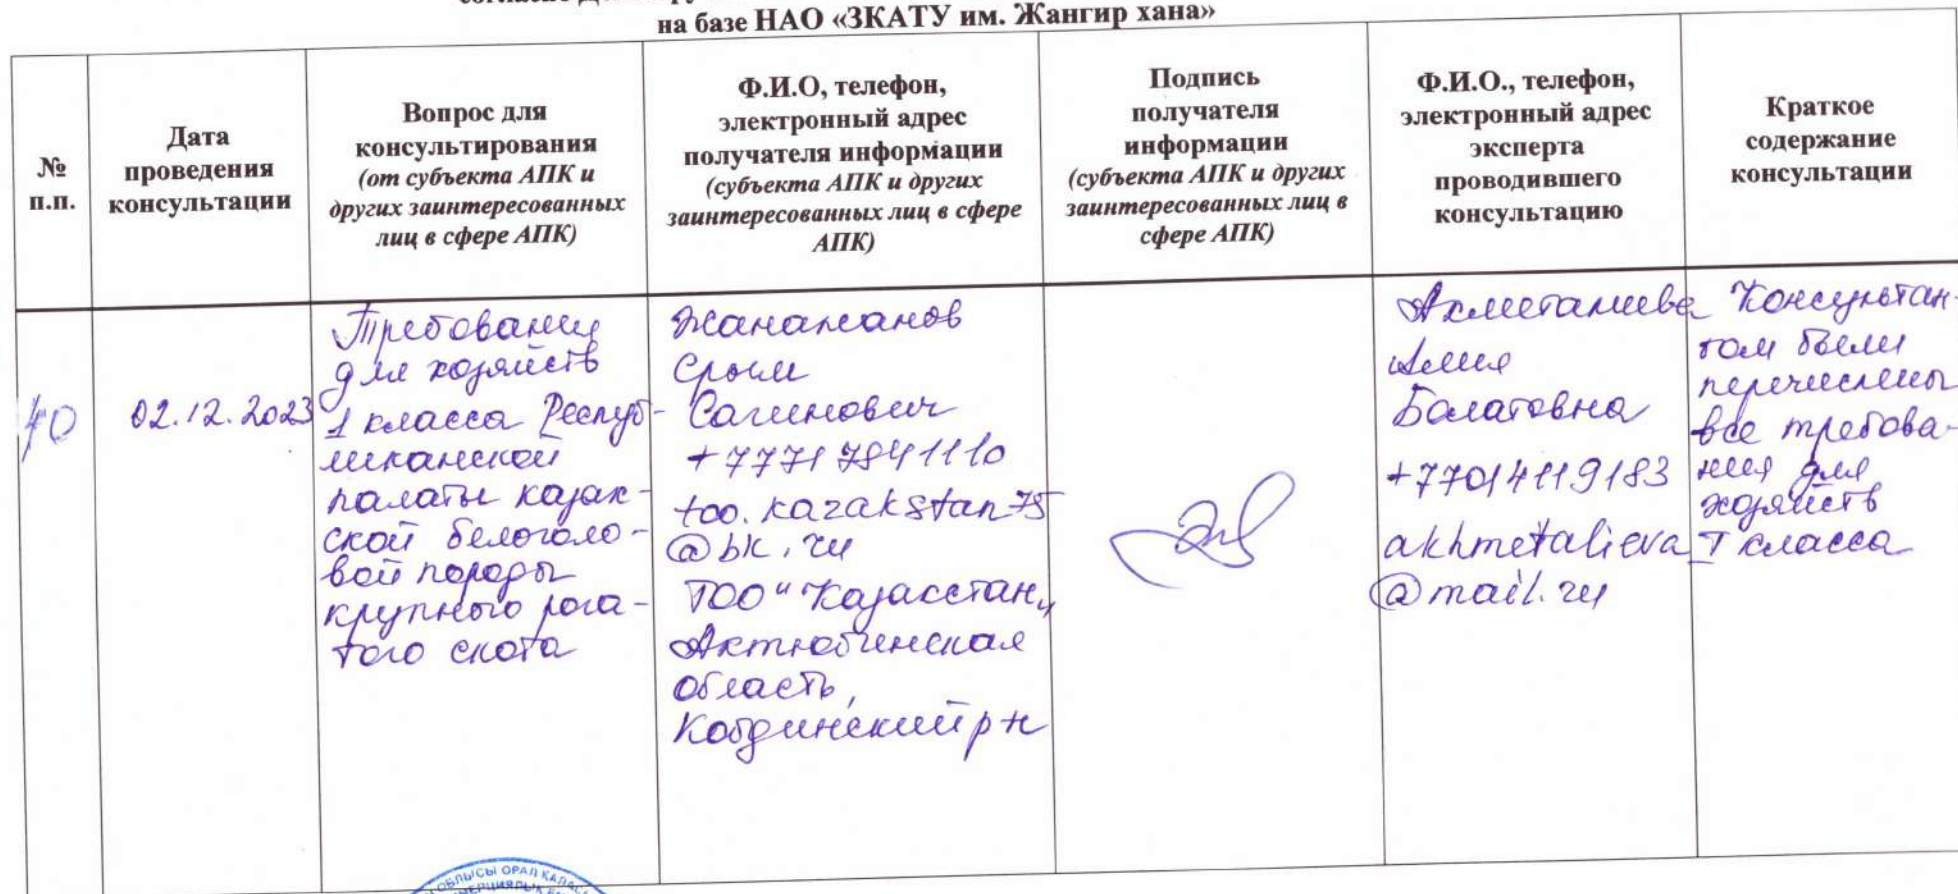 на базе НАО «ЗКАТУ им. Жангир хана»
№
п.п.
Дата
проведения
консультации
Вопрос для
консультирования
(от субъекта АПК и
других заинтересованных
лиц в сфере АПК)
Ф.И.О, телефон,
электронный адрес
получателя информации
(субъекта АПК и других
заинтересованных лиц в сфере
АПК)
Подпись
получателя
информации
(субъекта АПК и других
заинтересованных лиц в
сфере АПК)
Ф.И.О., телефон,
электронный адрес
эксперта
проводившего
консультацию
Краткое
содержание
консультации
40
02.12.2023
Требования
для хозяйств
1 класса Респуб-
ликанской
палаты казах-
ской белоголо-
вой породы
крупного рога-
того скота
Жанажанов
Срым
Сагинович
+77717841110
too.kazakstan-75
@bk.ru
ТОО "Казахстан"
Актюбинская
область,
Кобдинский р-н
Ахметалиева
Алия
Болатовна
+77014119183
akhmetalieva
@mail.ru
Консультан-
том были
перечислены
все требова-
ния для
хозяйств
I класса
ОБЛЫСЫ ОРАЛ ҚАЛАСЫ